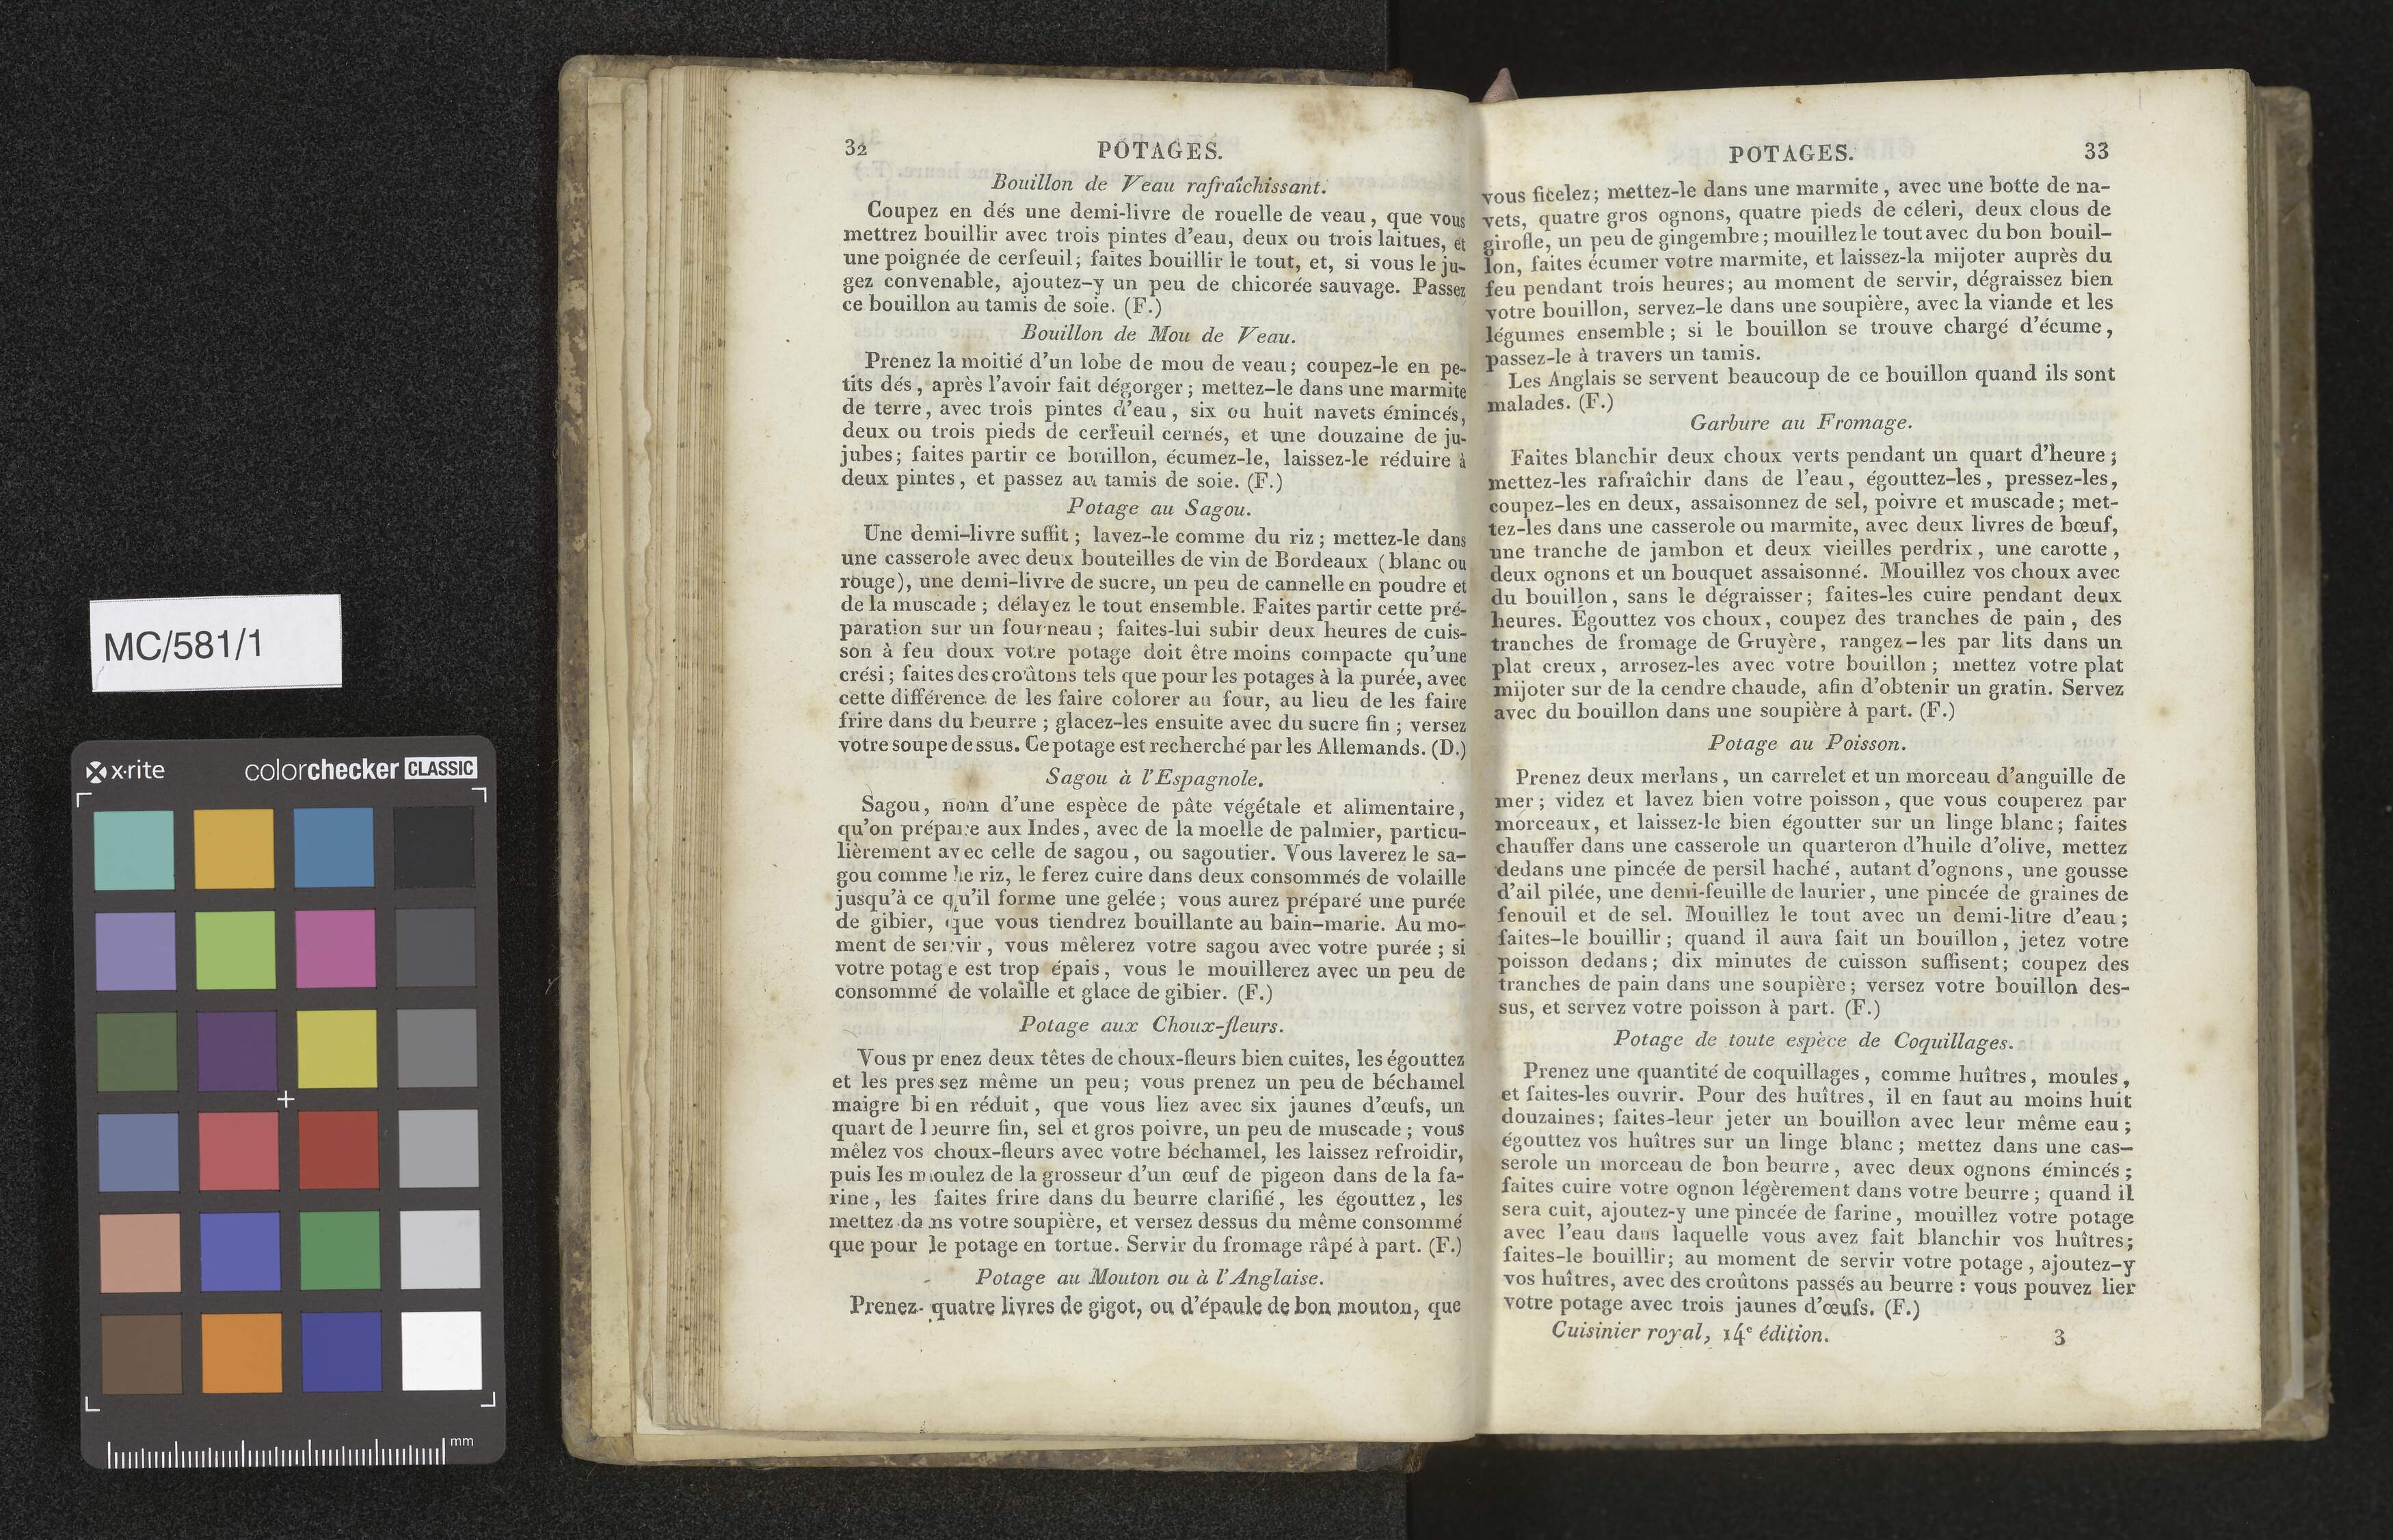 MC/581/1
x·rite
colorchecker CLASSIC
mm
32
POTAGES.
Bouillon de Veau rafraîchissant.
Coupez en dés une demi-livre de rouelle de veau, que vous
mettrez bouillir avec trois pintes d'eau, deux ou trois laitues, et
une poignée de cerfeuil; faites bouillir le tout, et, si vous le ju-
gez convenable, ajoutez-y un peu de chicorée sauvage. Passez
ce bouillon au tamis de soie. (F.)
Bouillon de Mou de Veau.
Prenez la moitié d'un lobe de mou de veau; coupez-le en pe-
tits dés, après l'avoir fait dégorger; mettez-le dans une marmite
de terre, avec trois pintes d'eau, six ou huit navets émincés,
deux ou trois pieds de cerfeuil cernés, et une douzaine de ju-
jubes; faites partir ce bouillon, écumez-le, laissez-le réduire à
deux pintes, et passez au tamis de soie. (F.)
Potage au Sagou.
Une demi-livre suffit; lavez-le comme du riz; mettez-le dans
une casserole avec deux bouteilles de vin de Bordeaux (blanc ou
rouge), une demi-livre de sucre, un peu de cannelle en poudre et
de la muscade; délayez le tout ensemble. Faites partir cette pré-
paration sur un fourneau; faites-lui subir deux heures de cuis-
son à feu doux votre potage doit être moins compacte qu'une
crési; faites des croûtons tels que pour les potages à la purée, avec
cette différence de les faire colorer au four, au lieu de les faire
frire dans du beurre; glacez-les ensuite avec du sucre fin; versez
votre soupe dessus. Ce potage est recherché par les Allemands. (D.)
Sagou à l'Espagnole.
Sagou, nom d'une espèce de pâte végétale et alimentaire,
qu'on prépare aux Indes, avec de la moelle de palmier, particu-
lièrement avec celle de sagou, ou sagoutier. Vous laverez le sa-
gou comme le riz, le ferez cuire dans deux consommés de volaille
jusqu'à ce qu'il forme une gelée; vous aurez préparé une purée
de gibier, que vous tiendrez bouillante au bain-marie. Au mo-
ment de servir, vous mêlerez votre sagou avec votre purée; si
votre potage est trop épais, vous le mouillerez avec un peu de
consommé de volaille et glace de gibier. (F.)
Potage aux Choux-fleurs.
Vous prenez deux têtes de choux-fleurs bien cuites, les égouttez
et les pressez même un peu; vous prenez un peu de béchamel
maigre bien réduit, que vous liez avec six jaunes d'œufs, un
quart de beurre fin, sel et gros poivre, un peu de muscade; vous
mêlez vos choux-fleurs avec votre béchamel, les laissez refroidir,
puis les moulez de la grosseur d'un œuf de pigeon dans de la fa-
rine, les faites frire dans du beurre clarifié, les égouttez, les
mettez dans votre soupière, et versez dessus du même consommé
que pour le potage en tortue. Servir du fromage râpé à part. (F.)
Potage au Mouton ou à l'Anglaise.
Prenez quatre livres de gigot, ou d'épaule de bon mouton, que
POTAGES.
33
vous ficelez; mettez-le dans une marmite, avec une botte de na-
vets, quatre gros ognons, quatre pieds de céleri, deux clous de
girofle, un peu de gingembre; mouillez le tout avec du bon bouil-
lon, faites écumer votre marmite, et laissez-la mijoter auprès du
feu pendant trois heures; au moment de servir, dégraissez bien
votre bouillon, servez-le dans une soupière, avec la viande et les
légumes ensemble; si le bouillon se trouve chargé d'écume,
passez-le à travers un tamis.
Les Anglais se servent beaucoup de ce bouillon quand ils sont
malades. (F.)
Garbure au Fromage.
Faites blanchir deux choux verts pendant un quart d'heure;
mettez-les rafraîchir dans de l'eau, égouttez-les, pressez-les,
coupez-les en deux, assaisonnez de sel, poivre et muscade; met-
tez-les dans une casserole ou marmite, avec deux livres de bœuf,
une tranche de jambon et deux vieilles perdrix, une carotte,
deux ognons et un bouquet assaisonné. Mouillez vos choux avec
du bouillon, sans le dégraisser; faites-les cuire pendant deux
heures. Égouttez vos choux, coupez des tranches de pain, des
tranches de fromage de Gruyère, rangez-les par lits dans un
plat creux, arrosez-les avec votre bouillon; mettez votre plat
mijoter sur de la cendre chaude, afin d'obtenir un gratin. Servez
avec du bouillon dans une soupière à part. (F.)
Potage au Poisson.
Prenez deux merlans, un carrelet et un morceau d'anguille de
mer; videz et lavez bien votre poisson, que vous couperez par
morceaux, et laissez-le bien égoutter sur un linge blanc; faites
chauffer dans une casserole un quarteron d'huile d'olive, mettez
dedans une pincée de persil haché, autant d'ognons, une gousse
d'ail pilée, une demi-feuille de laurier, une pincée de graines de
fenouil et de sel. Mouillez le tout avec un demi-litre d'eau;
faites-le bouillir; quand il aura fait un bouillon, jetez votre
poisson dedans; dix minutes de cuisson suffisent; coupez des
tranches de pain dans une soupière; versez votre bouillon des-
sus, et servez votre poisson à part. (F.)
Potage de toute espèce de Coquillages.
Prenez une quantité de coquillages, comme huîtres, moules,
et faites-les ouvrir. Pour des huîtres, il en faut au moins huit
douzaines; faites-leur jeter un bouillon avec leur même eau;
égouttez vos huîtres sur un linge blanc; mettez dans une cas-
serole un morceau de bon beurre, avec deux ognons émincés;
faites cuire votre ognon légèrement dans votre beurre; quand il
sera cuit, ajoutez-y une pincée de farine, mouillez votre potage
avec l'eau dans laquelle vous avez fait blanchir vos huîtres;
faites-le bouillir; au moment de servir votre potage, ajoutez-y
vos huîtres, avec des croûtons passés au beurre : vous pouvez lier
votre potage avec trois jaunes d'œufs. (F.)
Cuisinier royal, 14e édition.
3